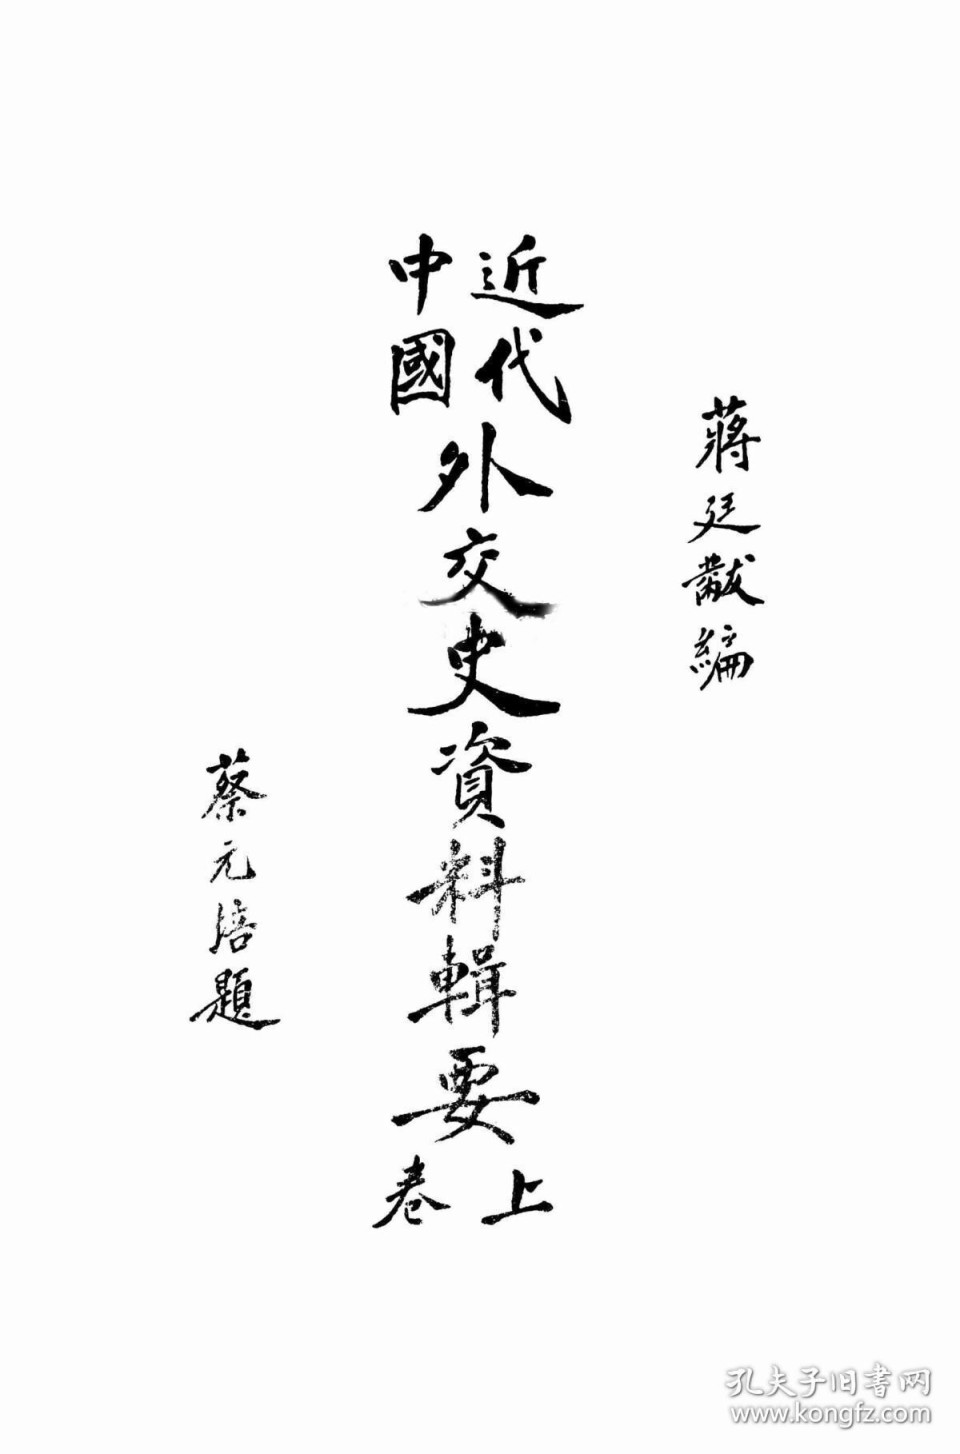 蔣廷黻編
近代
中國
外交史資料輯要
上卷
蔡元培題
孔夫子旧書网
www.kongfz.com